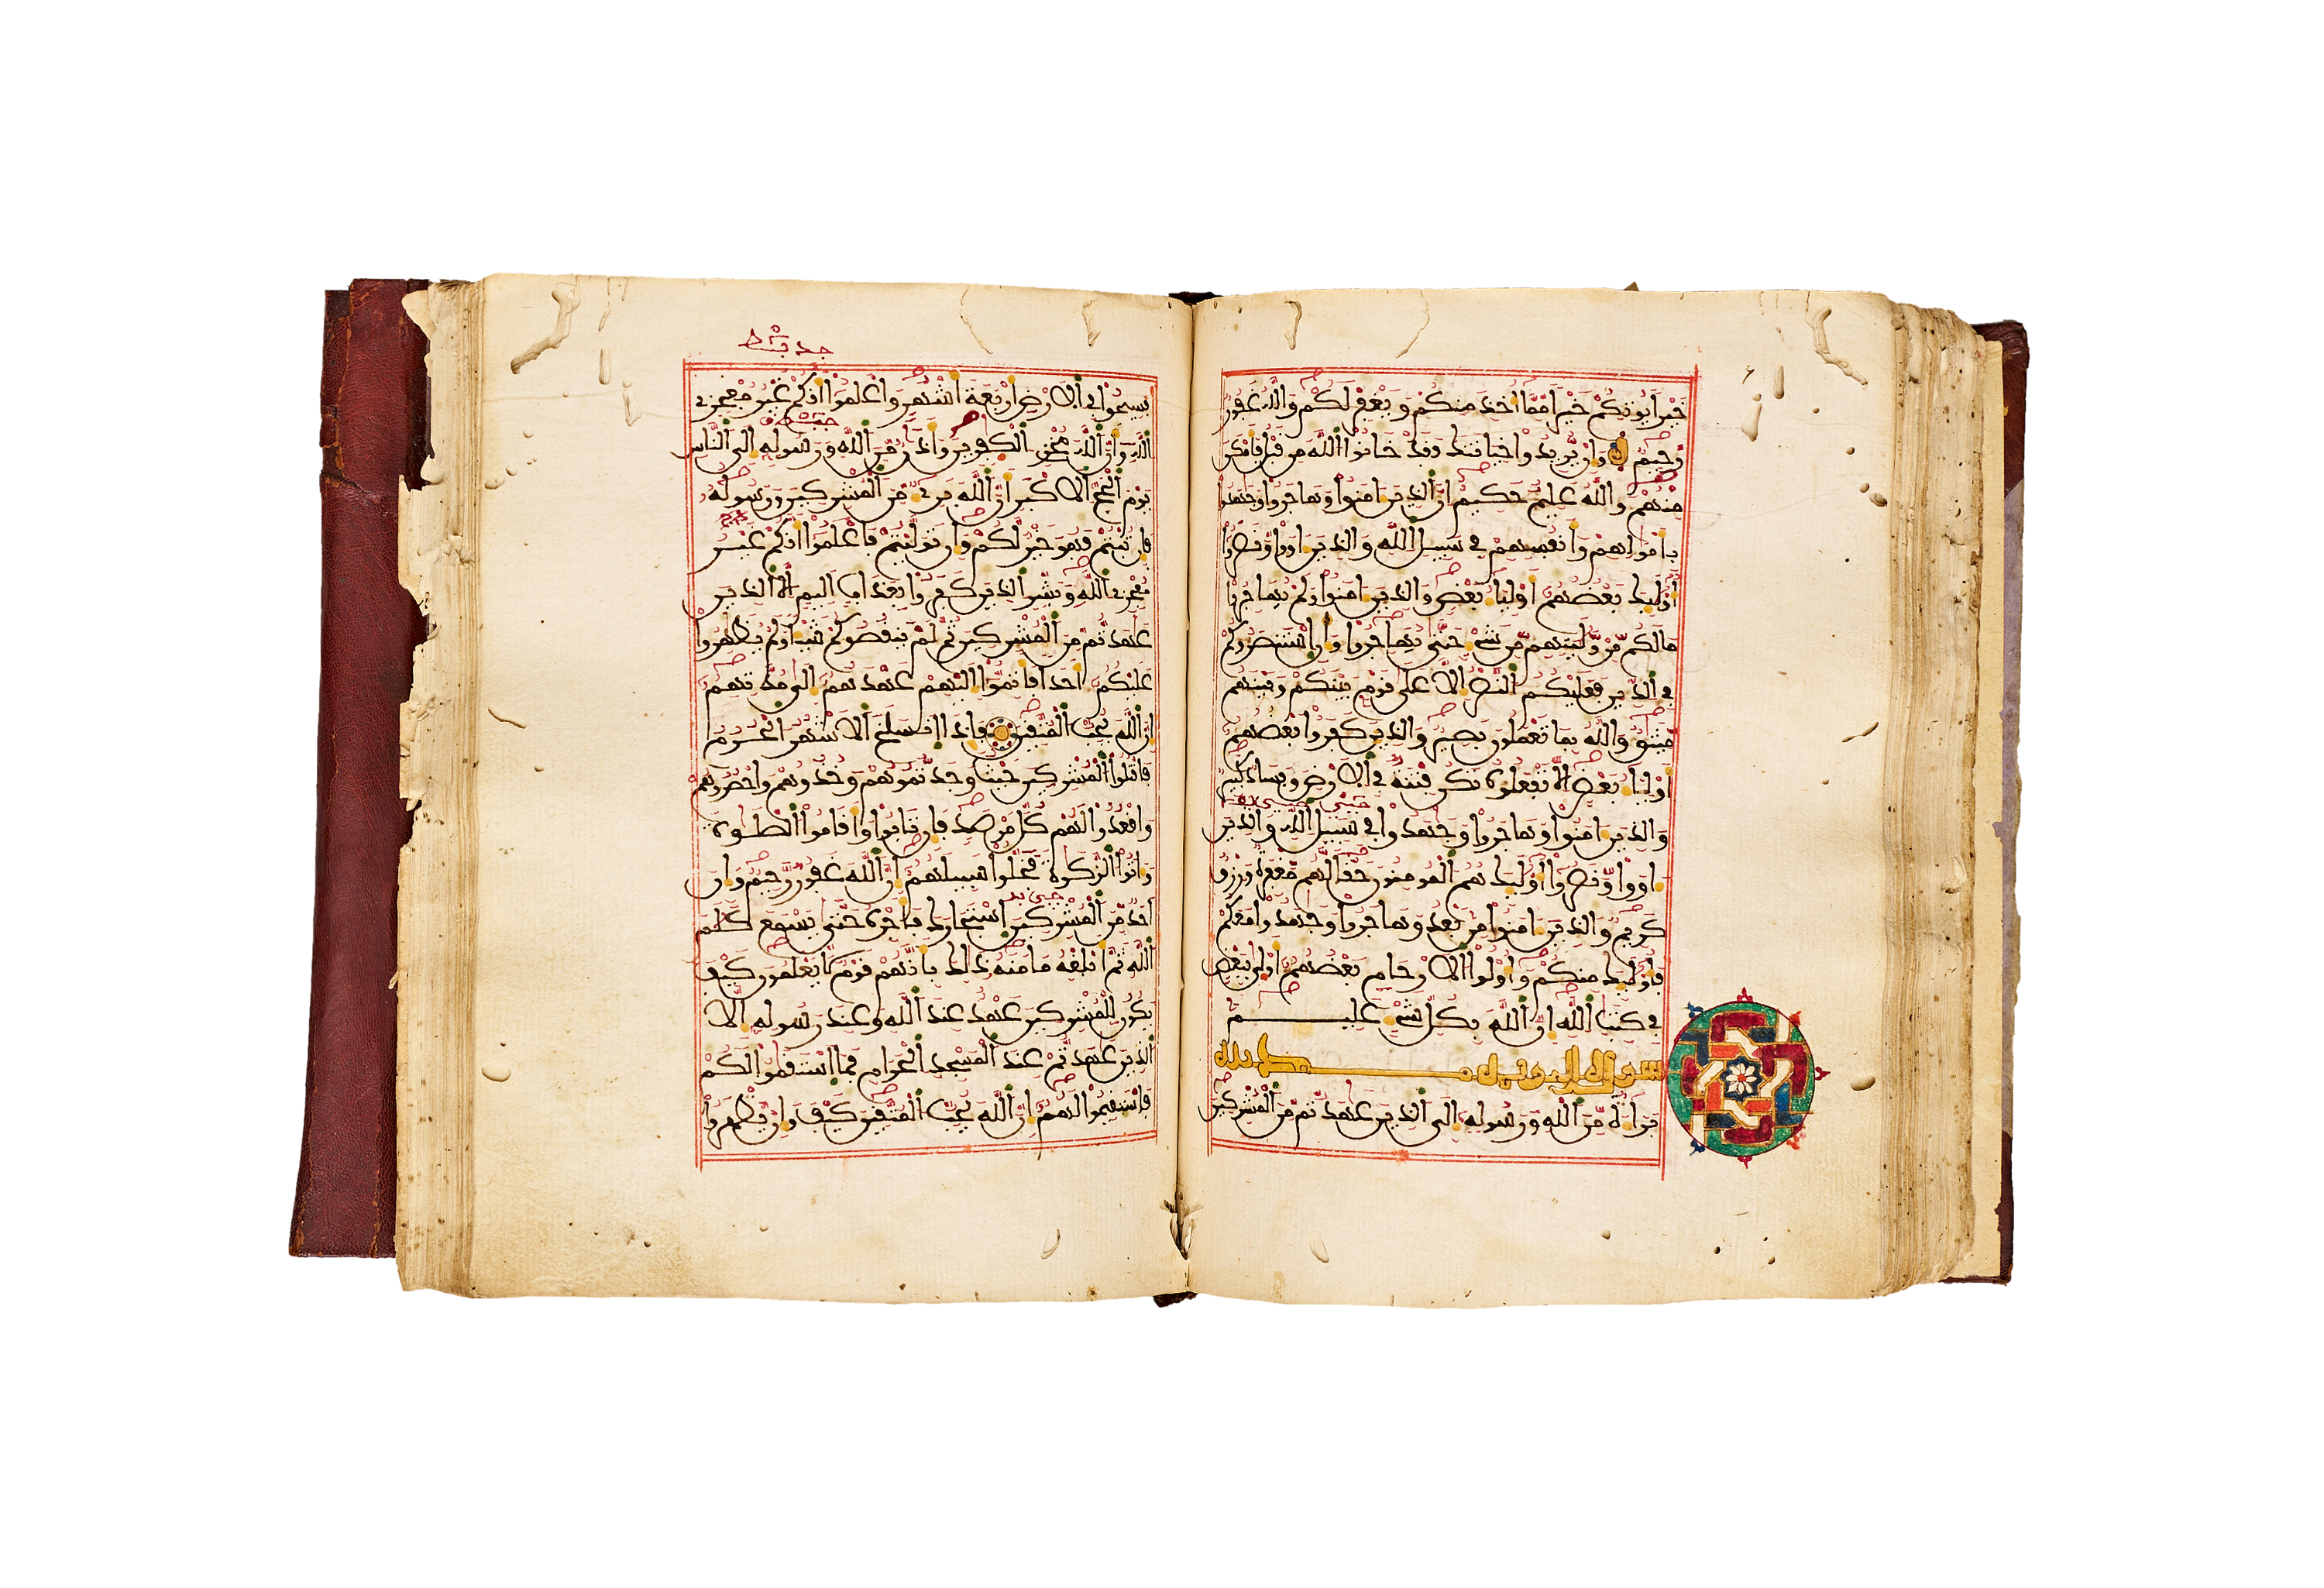 خيرا يوتكم خيرا مما اخذ منكم ويغفر لكم والله غفور
رحيم وان يريدوا خيانتك فقد خانوا الله من قبل فامكن
منهم والله عليم حكيم ان الذين امنوا وهاجروا وجهدوا
باموالهم وانفسهم في سبيل الله والذين اووا ونصروا
اوليك بعضهم اولياء بعض والذين امنوا ولم يهاجروا
مالكم من وليتهم من شيء حتى يهاجروا وان استنصروكم
في الدين فعليكم النصر الا على قوم بينكم وبينهم
ميثق والله بما تعملون بصير والذين كفروا بعضهم
اولياء بعض الا تفعلوه تكن فتنة في الارض وفساد كبير
والذين امنوا وهاجروا وجهدوا في سبيل الله والذين
اووا ونصروا اوليك هم المومنون حقا لهم مغفرة ورزق
كريم والذين امنوا من بعد وهاجروا وجهدوا معكم
فاوليك منكم واولوا الارحام بعضهم اولى ببعض
في كتب الله ان الله بكل شيء عليم
سورة
براءة من الله ورسوله الى الذين عهدتم من المشركين
فسيحوا في الارض اربعة اشهر واعلموا انكم غير معجزي
الله وان الله مخزي الكفرين واذن من الله ورسوله الى الناس
يوم الحج الاكبر ان الله بريء من المشركين ورسوله
فان تبتم فهو خير لكم وان توليتم فاعلموا انكم غير
معجزي الله وبشر الذين كفروا بعذاب اليم الا الذين
عهدتم من المشركين ثم لم ينقصوكم شيئا ولم يظهروا
عليكم احدا فاتموا اليهم عهدهم الى مدتهم
ان الله يحب المتقين فاذا انسلخ الاشهر الحرم
فاقتلوا المشركين حيث وجدتموهم وخذوهم واحصروهم
واقعدوا لهم كل مرصد فان تابوا واقاموا الصلوة
واتوا الزكوة فخلوا سبيلهم ان الله غفور رحيم وان
احد من المشركين استجارك فاجره حتى يسمع كلم
الله ثم ابلغه مامنه ذلك بانهم قوم لا يعلمون كيف
يكون للمشركين عهد عند الله وعند رسوله الا
الذين عهدتم عند المسجد الحرام فما استقموا لكم
فاستقيموا لهم ان الله يحب المتقين كيف وان يظهروا